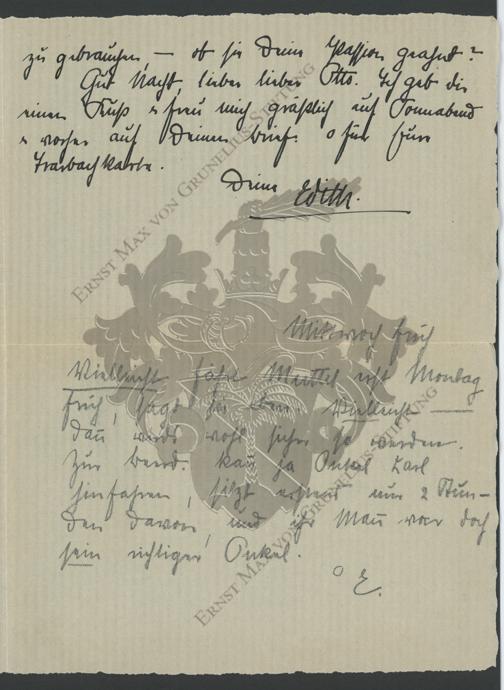 zu gebrauchen, — ob sie Deine Passion geahnt?
Gut Nacht, lieber lieber Otto. Ich geb dir
einen Kuß & freu mich gräßlich auf Sonnabend
& vorher auf Deinen Brief. o für Eure
Trarbachkarte.
Deine Edith.
Mittwoch früh
Vielleicht fährt Mutti erst Montag
früh, sagt sie eben. Vielleicht —
dann wirds wohl sicher so werden.
Zur Beerd. kann ja Onkel Karl
hinfahren, sitzt erstens nur 2 Stun-
den davon, und ihr Mann war doch
sein richtiger Onkel.
o E.
ERNST MAX VON GRUNELIUS-STIFTUNG
ERNST MAX VON GRUNELIUS-STIFTUNG